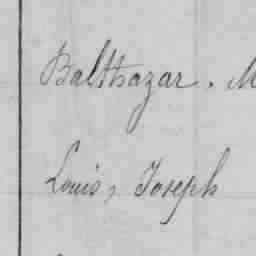 Balthazar. M
Louis, Joseph